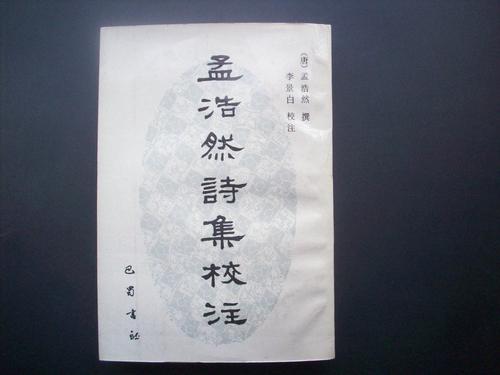 （唐）孟浩然 撰
李景白 校注
孟浩然詩集校注
巴蜀書社